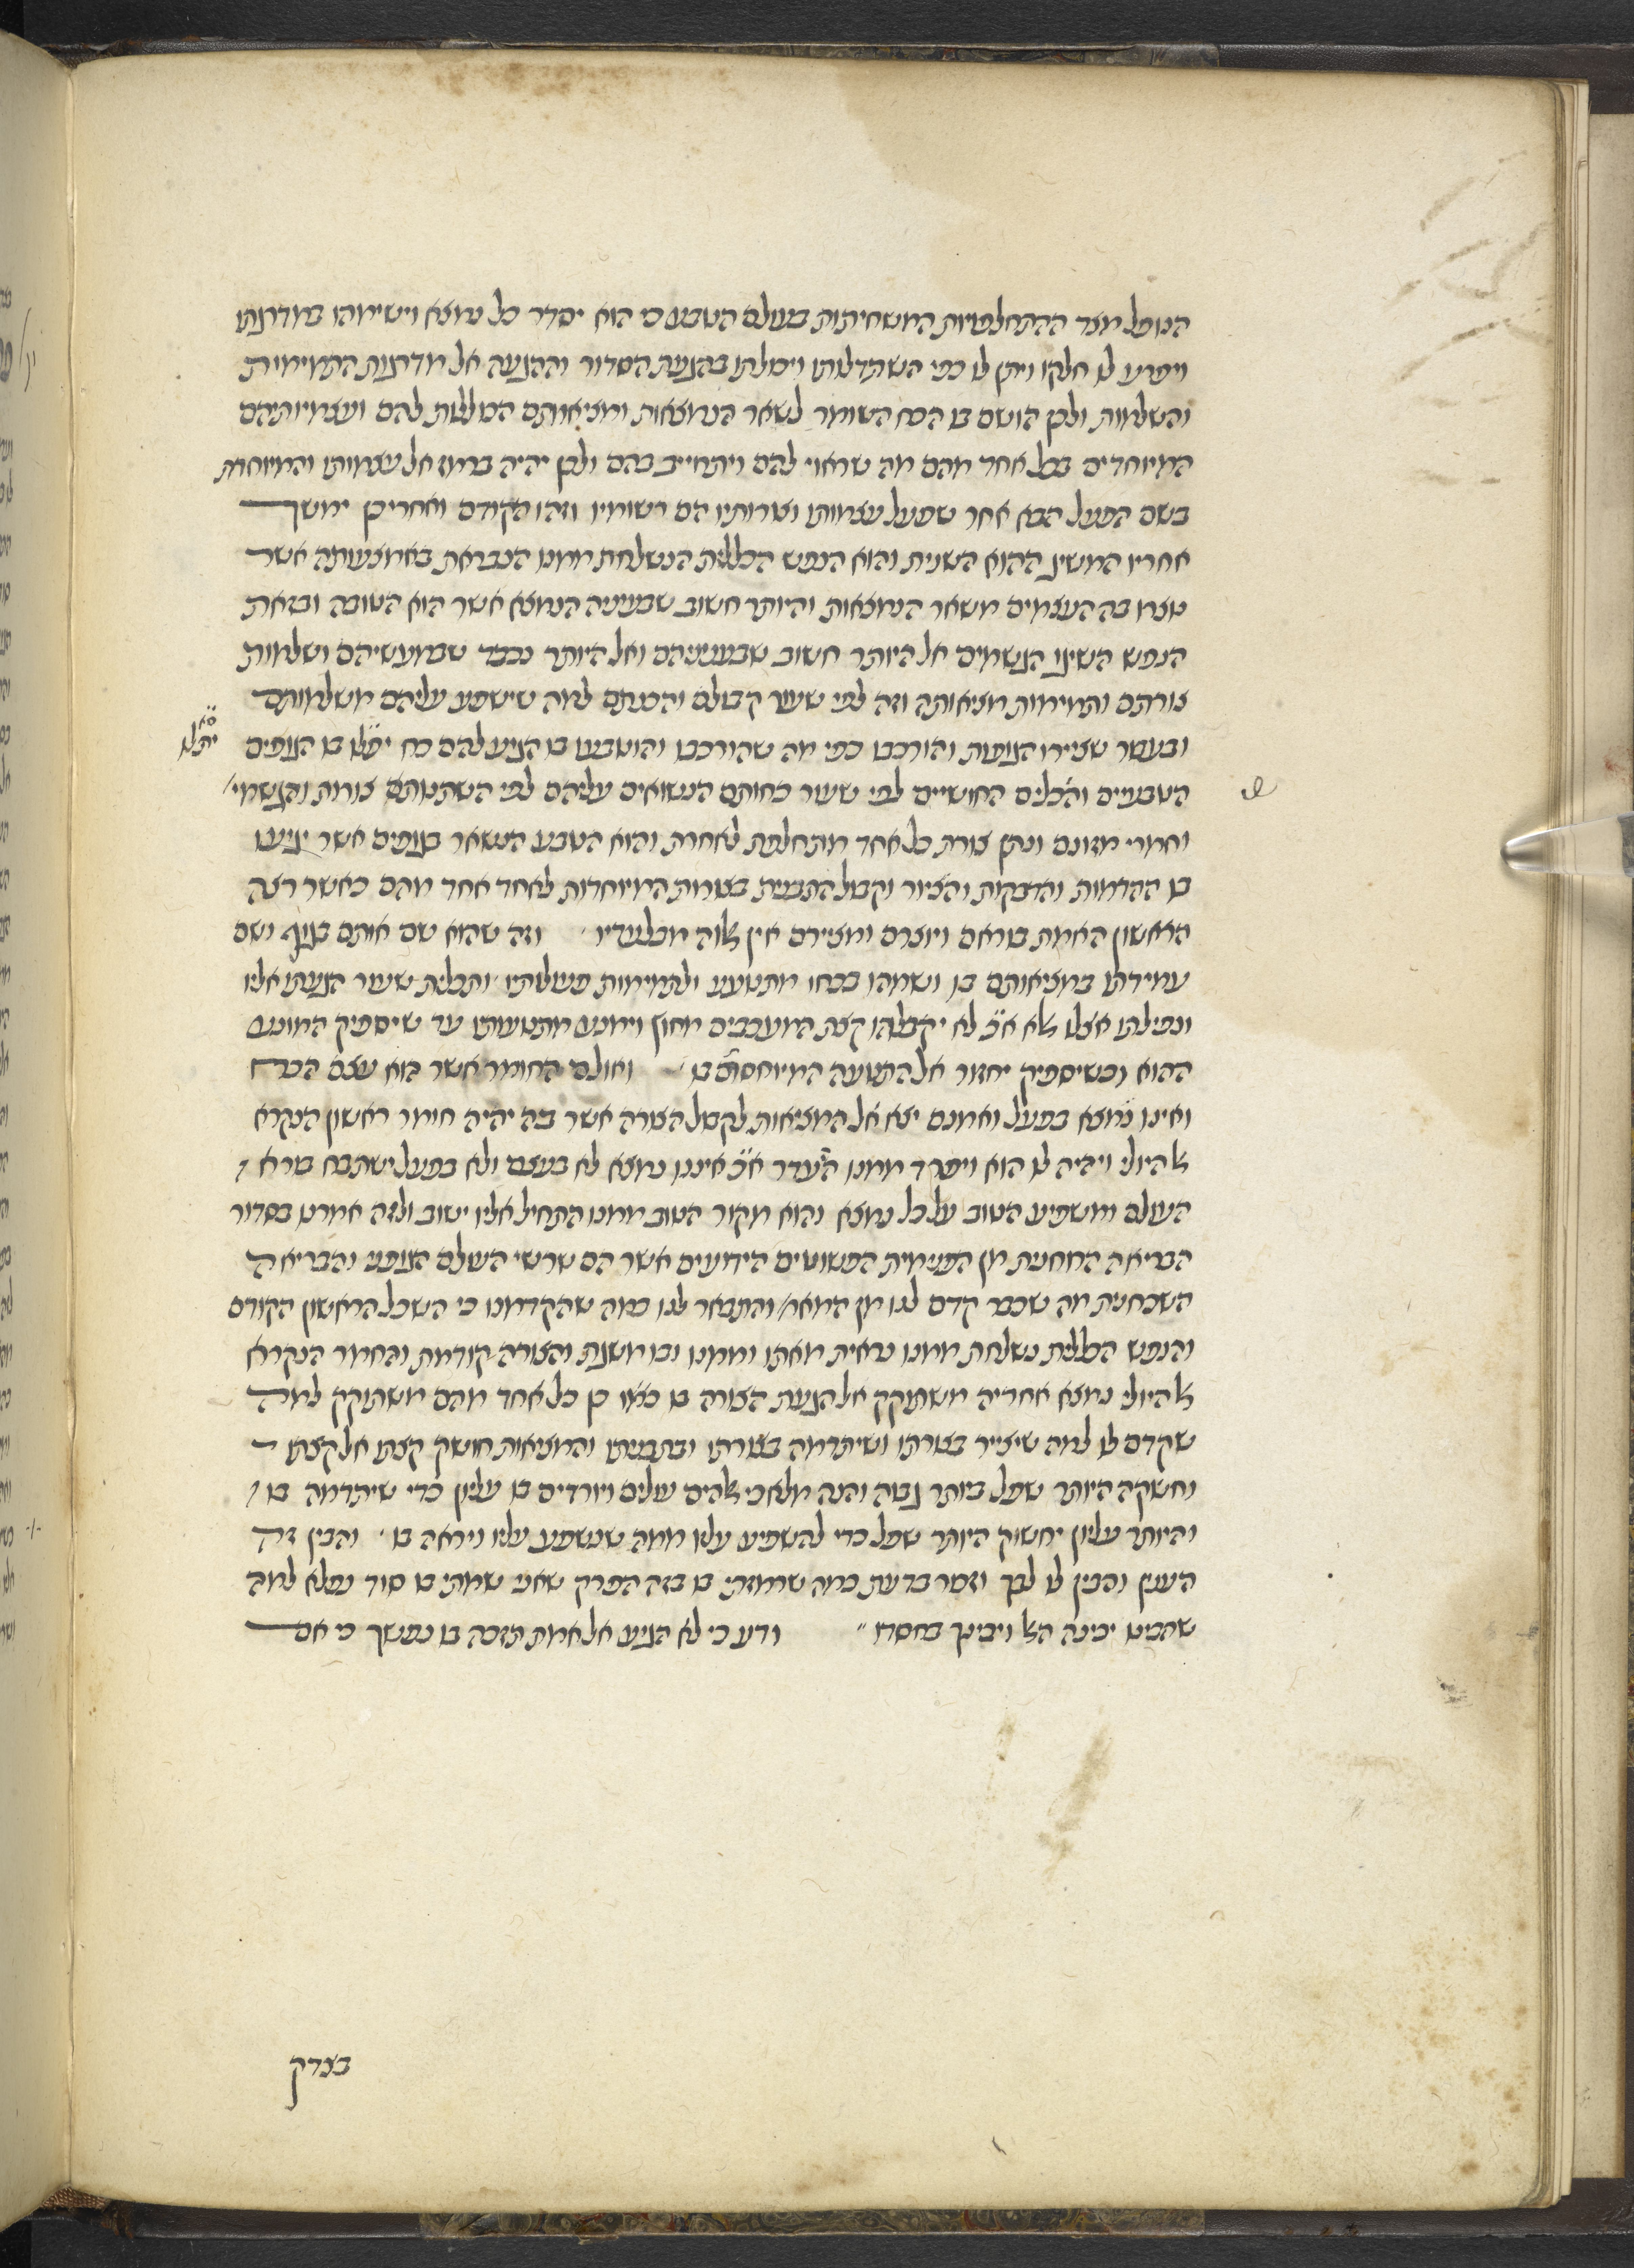 הנופל מצד ההתחלפויות המשחיתות בעולם הטבע כי הוא יסדר כל נמצא וישימהו במדרגתו
ויפרע לו חלקו ויתן לו כפי השתדלותו ויכולתו בהגעת הסדור וההגעה אל מדרגות התמימות
והשלמות ולכן הושם בו הכח השומר לשאר הנמצאות ומציאותם הכוללות להם ועצמיותיהם
המיוחדים בכל אחד מהם מה שראוי להם ויתחייב בהם ולכן יהיה ברמז אל עצמותו והמיוחדת
בשם הפעל הבא אחר שפעל עצמותו וצורותיו הם רשומיו וזהו הקודם ואחרי כן ימשך
אחריו המשיג ההוא השנית והוא הנפש הכללית הנשלחת ממנו הנבראת באמצעותה אשר
בה העצמים משאר הנמצאות והיותר חשוב שבעניני הנמצא אשר הוא הטובה ובזאת
הנפש השיגו הגשמים אל היותר חשוב שבעניניהם ואל היותר נכבד שבמעשיהם ושלמות
צורתם ותמימות מציאותה וזה לפי שעור קבולם והכנתם למה שישפע עליהם משלמותם
ובעבור שציירו הגופות והורכבו כפי מה שהורכבו והוטבעו בו הגיע להם כח יפעלו בו הגופים
ס״א יתלו
הטבעיים והכלים החושיים לפי שעור כחותם הנשואים עליהם לפי השתנותם צורות והגשמי
וחמרי מזונם ונתן צורת כל אחד מתחלפת לאחרת והוא הטבע הנשאר בגופים אשר יגיעו
בו ההדמות והדבקות והציור וקבול התבנית בצורות המיוחדות לאחד אחד מהם כאשר רצה
הראשון האמת בוראם ויוצרם ומציירם אין אלוה מבלעדיו וזה שהוא שם אותם בגוף ושם
עמידתו במציאותם בו ושמהו בכחו מתנועע ולתמימות פעולותיו ותכלית שעור הגעתו אליו
ונפילתו אצלו אלא א״כ לא יקבלהו קצת המעכבים מחוץ וימנע מתנועתו עד שיספיק המונע
ההוא וכשיספיק יחזור אל התנועה המיוחסת בו ואולם החומר אשר הוא עצם הכח
ואינו נמצא בפעל ואמנם יצא אל המציאות לקבול הצורה אשר בה יהיה חומר ראשון הנקרא
אל היולי ויהיה לו הוא ויפרד ממנו העדר א״כ איננו נמצא לא בעצם ולא בפעל ישתבח בורא
העולם ומשפיע הטוב על כל נמצא והוא מקור הטוב ממנו התחיל אליו ישוב ולזה אמרנו בסדור
הבריאה הרוחנית מן הפנימית הפשוטים הידועים אשר הם שרשי העולם הגופני והבריאה
השכחנית מה שכבר קדם לנו מן המאמ׳ והתבאר לנו במה שהקדמנו כי השכל הראשון הקודם
והנפש הכללית נשלחת ממנו נבראית מאתו וממנו ובו משגת והצורה קודמת והחמר הנקרא
אל היולי נמצא אחריה משתוקק אל הגעת הצורה בו כאלו כן כל אחד מהם משתוקק למה
שקדם לו למה שיצייר בצורתו ושיתדמה בצורתו ובתבניתו והמציאות חושק קצתו אל קצתו
וחשקה היותר שפל ביותר גבוה והנה מלאכי אלהים עולים ויורדים בו עליון כדי שיתדמה בו
והיותר עליון יחשוק היותר שפל כדי להשפיע עליו ממה שנשפע עליו ויראה בו והבין זה
הענין והכין לו לבך וזכור בדעת במה שרמזתי בו בזה הפרק שאני שמתי בו סוד נפלא למה
שהכינו יכינה האל ויבינך בחסדו ״ ודע כי לא הגיע אל אמת תזכה בו נפשך כי אם
בצדק